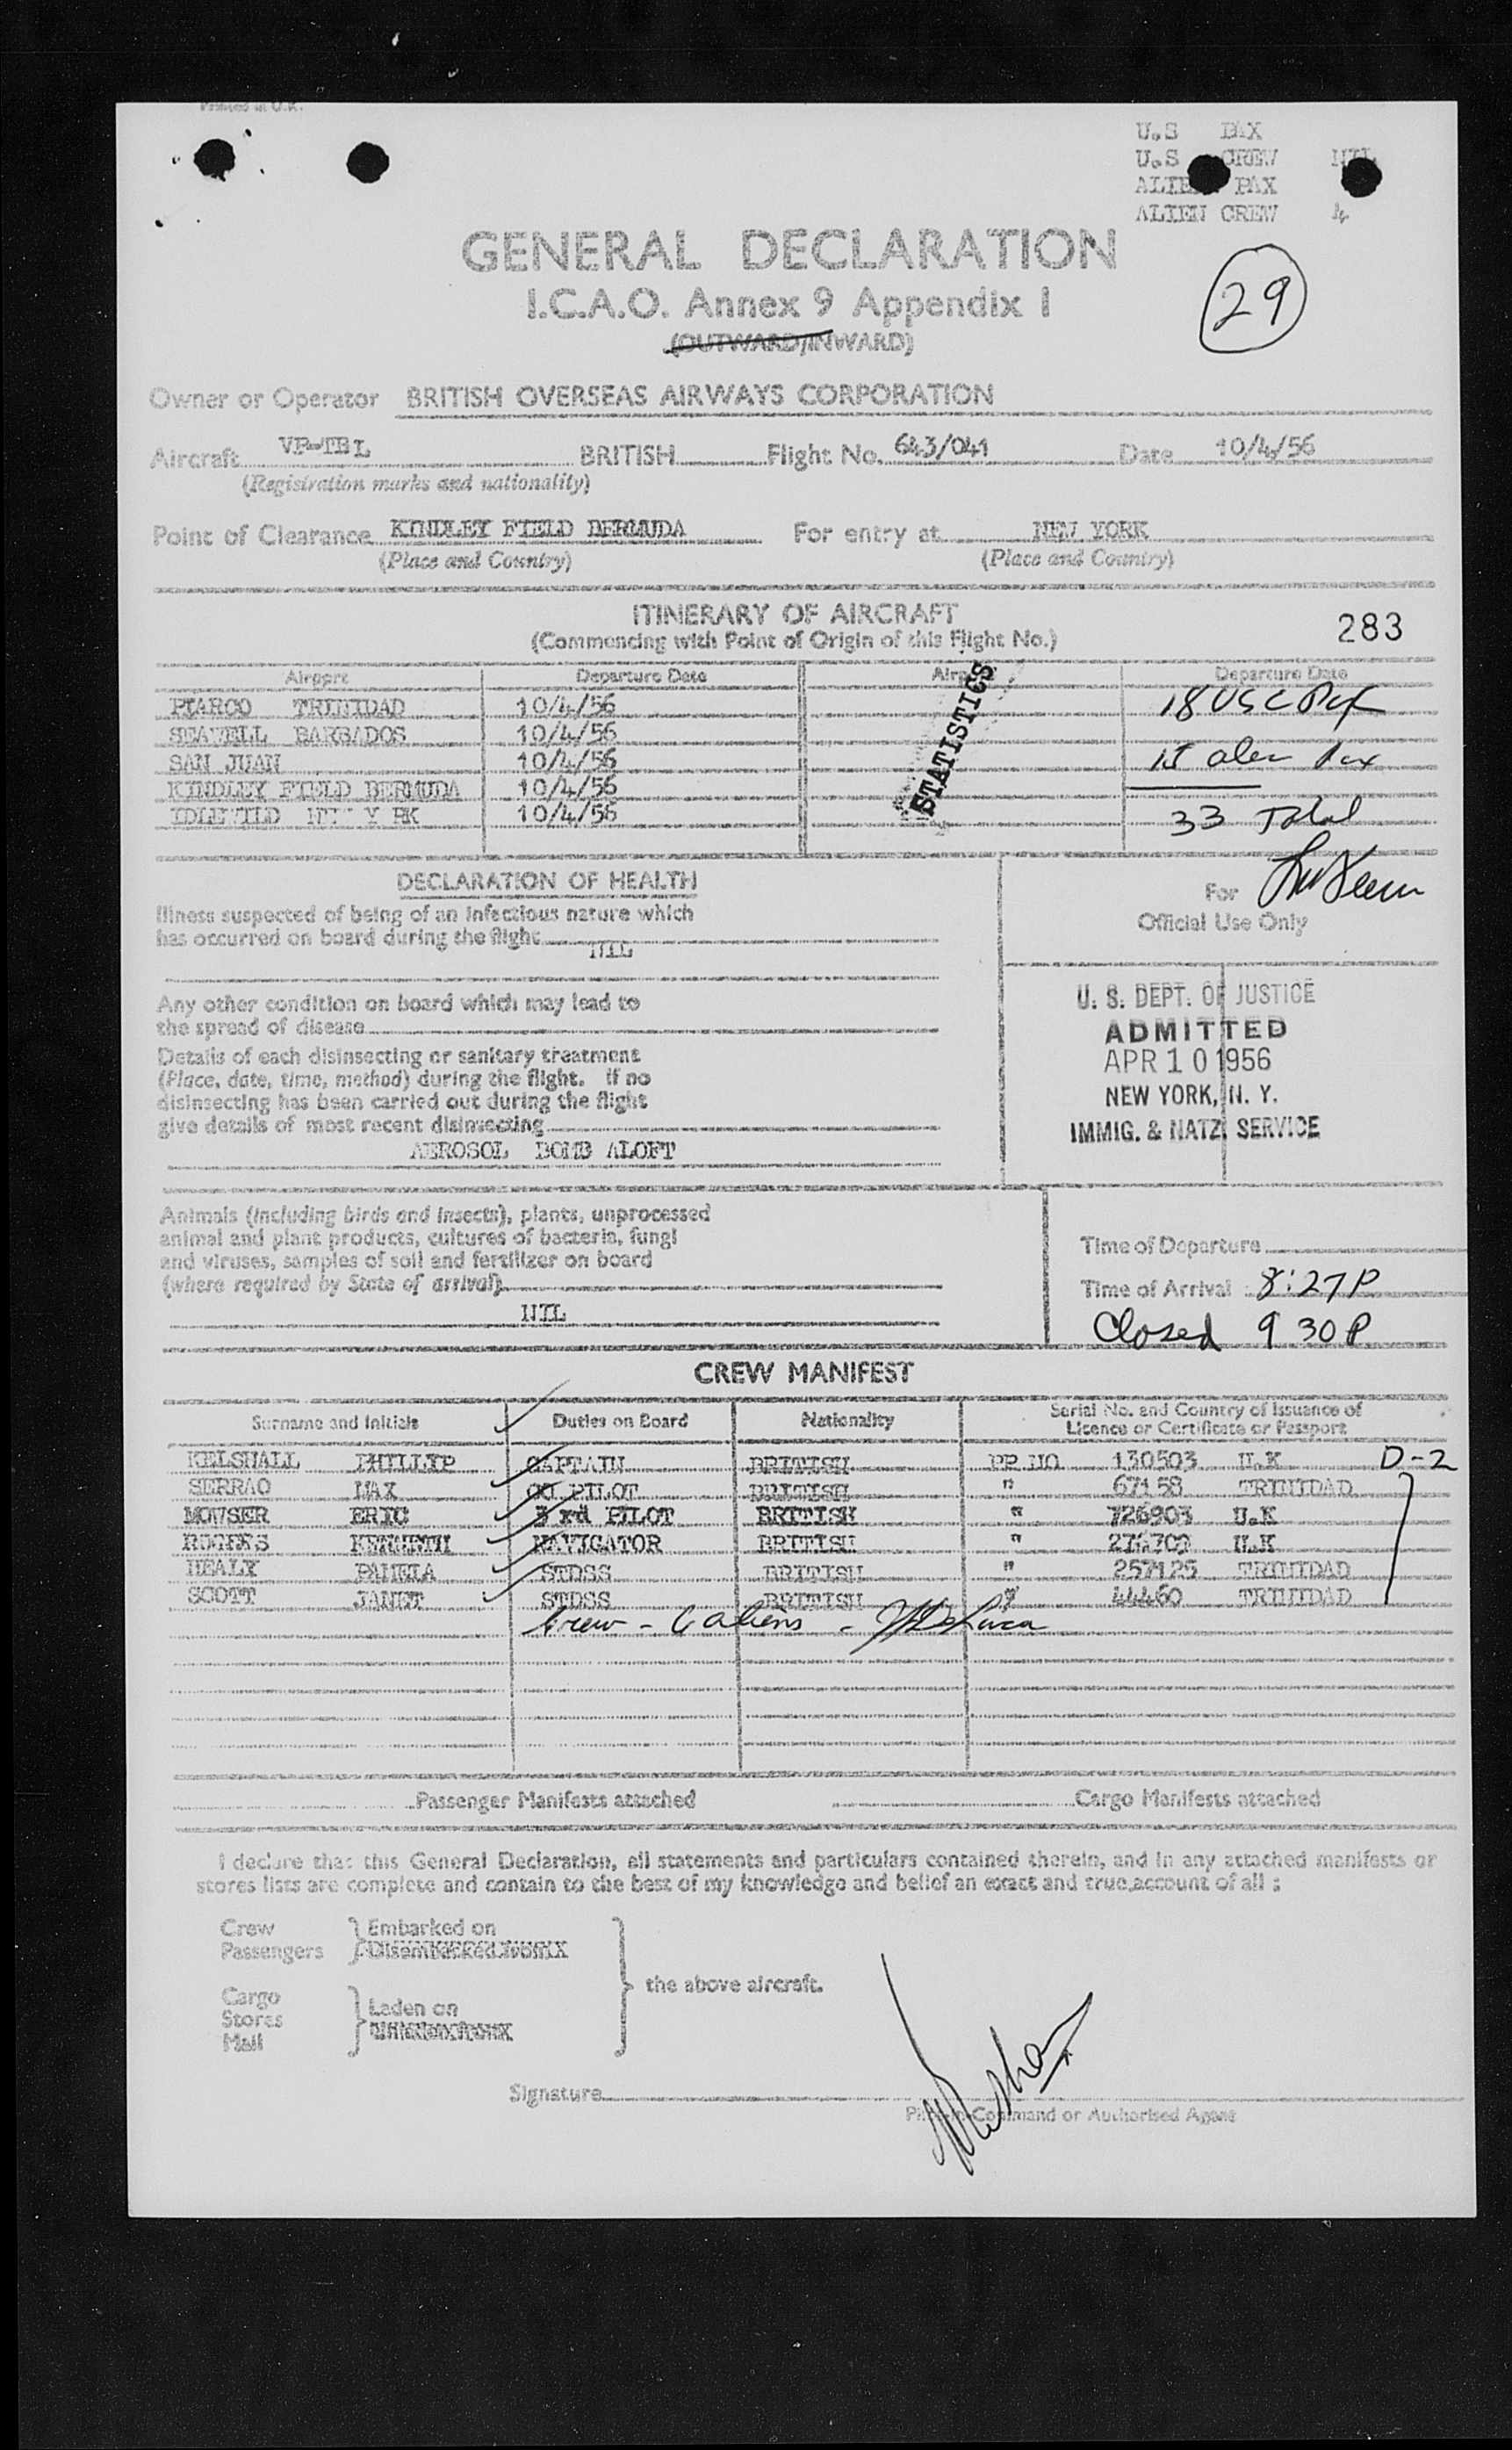 Printed in U.K.
U.S PAX
U.S CREW NIL
ALIEN PAX
ALIEN CREW 4
GENERAL DECLARATION
I.C.A.O. Annex 9 Appendix I
(OUTWARD/INWARD)
29
Owner or Operator BRITISH OVERSEAS AIRWAYS CORPORATION
Aircraft VP-TBL BRITISH Flight No. 643/041 Date 10/4/56
(Registration marks and nationality)
Point of Clearance KINDLEY FIELD BERMUDA For entry at NEW YORK
(Place and Country) (Place and Country)
ITINERARY OF AIRCRAFT
(Commencing with Point of Origin of this Flight No.)
283
Airport Departure Date Airport Departure Date
PIARCO TRINIDAD 10/4/56 18 USC
SEAWELL BARBADOS 10/4/56
SAN JUAN 10/4/56 15 alien
KINDLEY FIELD BERMUDA 10/4/56
IDLEWILD 10/4/56 33 Total
STATISTICS
DECLARATION OF HEALTH
Illness suspected of being of an infectious nature which
has occurred on board during the flight
NIL
Any other condition on board which may lead to
the spread of disease
Details of each disinsecting or sanitary treatment
(Place, date, time, method) during the flight. If no
disinsecting has been carried out during the flight
give details of most recent disinsecting
AEROSOL BOMB ALOFT
For
Official Use Only
U. S. DEPT. OF JUSTICE
ADMITTED
APR 10 1956
NEW YORK, N. Y.
IMMIG. & NATZ. SERVICE
Animals (including birds and insects), plants, unprocessed
animal and plant products, cultures of bacteria, fungi
and viruses, samples of soil and fertilizer on board
(where required by State of arrival)
NIL
Time of Departure
Time of Arrival 8:27P
Closed 9 30 P
CREW MANIFEST
Surname and Initials Duties on Board Nationality Serial No. and Country of Issuance of
Licence or Certificate or Passport
KELSHALL PHILLIP CAPTAIN BRITISH PP NO 130503 U.K D-2
SERRAO MAX CO PILOT BRITISH " 67158 TRINIDAD
MOWSER ERIC 3 rd PILOT BRITISH " 726903 U.K
ROGERS KENNETH NAVIGATOR BRITISH " U.K
HEALY PAMELA STDSS BRITISH " 257125 TRINIDAD
SCOTT JANET STDSS BRITISH " 44460 TRINIDAD
Crew - 6 aliens -
Passenger Manifests attached Cargo Manifests attached
I declare that this General Declaration, all statements and particulars contained therein, and in any attached manifests or
stores lists are complete and contain to the best of my knowledge and belief an exact and true account of all :
Crew
Passengers
Embarked on
Disembarked from
Cargo
Stores
Mail
Laden on
the above aircraft.
Signature
Pilot-in-Command or Authorised Agent